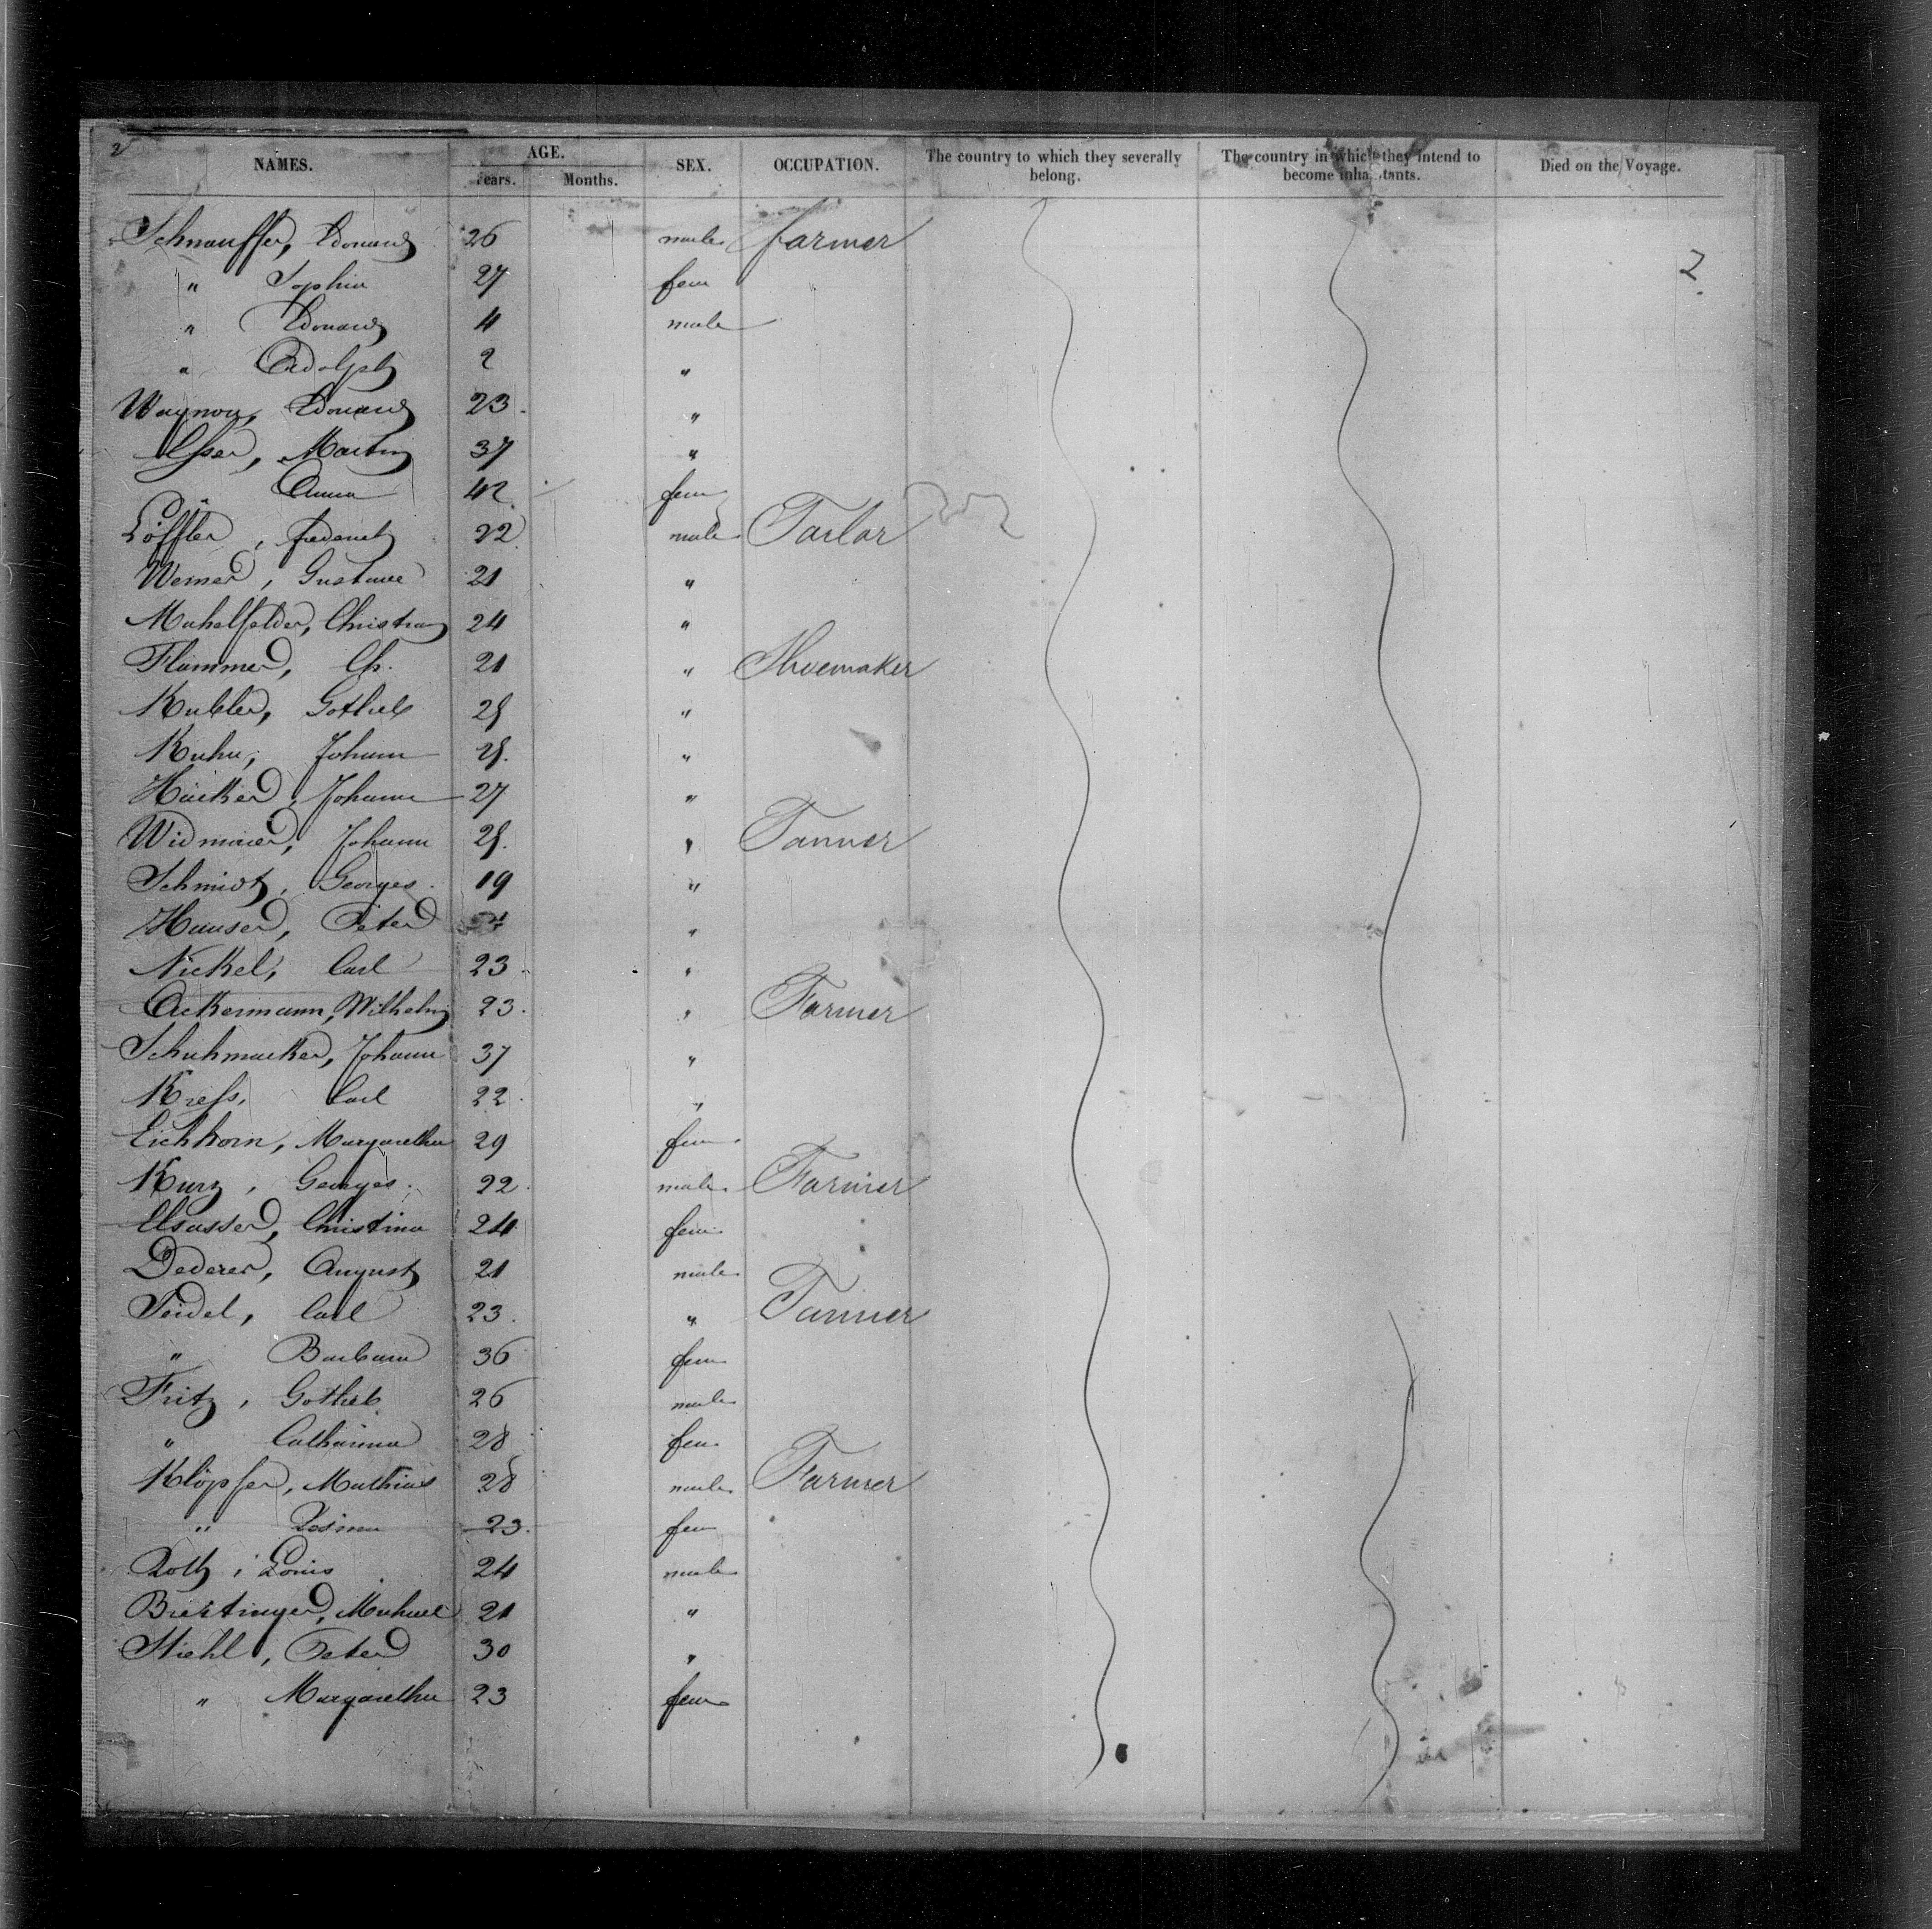 2
NAMES. AGE. SEX. OCCUPATION. The country to which they severally belong. The country in which they intend to become inhabitants. Died on the Voyage.
Years. Months.
Schnauffer, Edouard 26 male farmer
" Sophia 27 fem 2
" Edouard 4 male
" Adolph 2 "
Edouard 23 "
Esser, Martin 37 "
Anna 42 fem
Löffler, frederick 22 male Tailor
Werner, Gustave 21 "
Christian 24 "
Flammer, Ch. 21 " Shoemaker
Kubler, Gotlieb 25 "
Kuhn, Johann 25. "
Häcker, Johann 27 "
Widmaier, Johann 25. " Tanner
Schmidt, Georges 19 "
Hauser, Peter "
Nickel, Carl 23 "
Ackermann, Wilhelm 23. " Farmer
Schuhmacker, Johann 37 "
Kress, Carl 22 "
Eichhorn, Margaretha 29 fem
Kurz, Georges 22 male Farmer
Elsasser, Christina 24 fem
Dederer, August 21 male
Seidel, Carl 23. " Farmer
" Barbara 36 fem
Fritz, Gotlieb 26 male
" Catharina 28 fem
Klöpfer, Mathias 28 male Farmer
" Rosina 23. fem
Roth, Louis 24 male
Michael 21 "
Stiehl, Peter 30 "
" Margaretha 23 fem